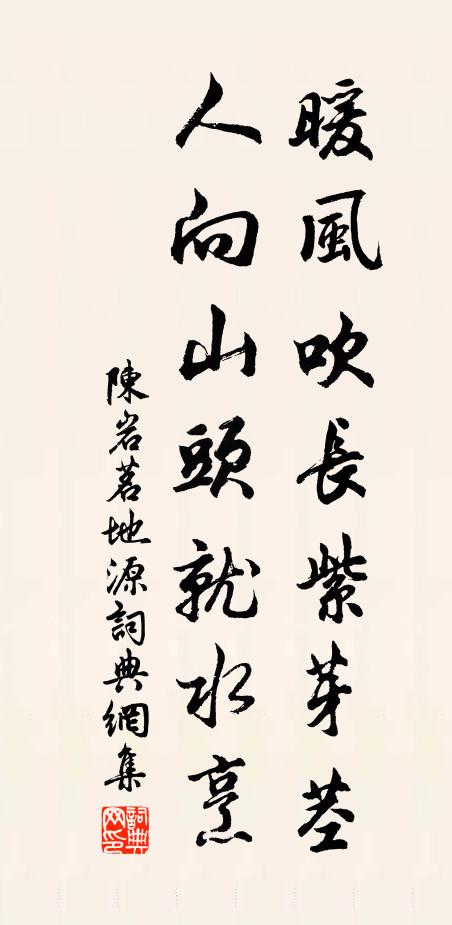 暖風吹長紫芽莖
人向山頭就水烹
陳岩茗地源詞典網集
詞典網印